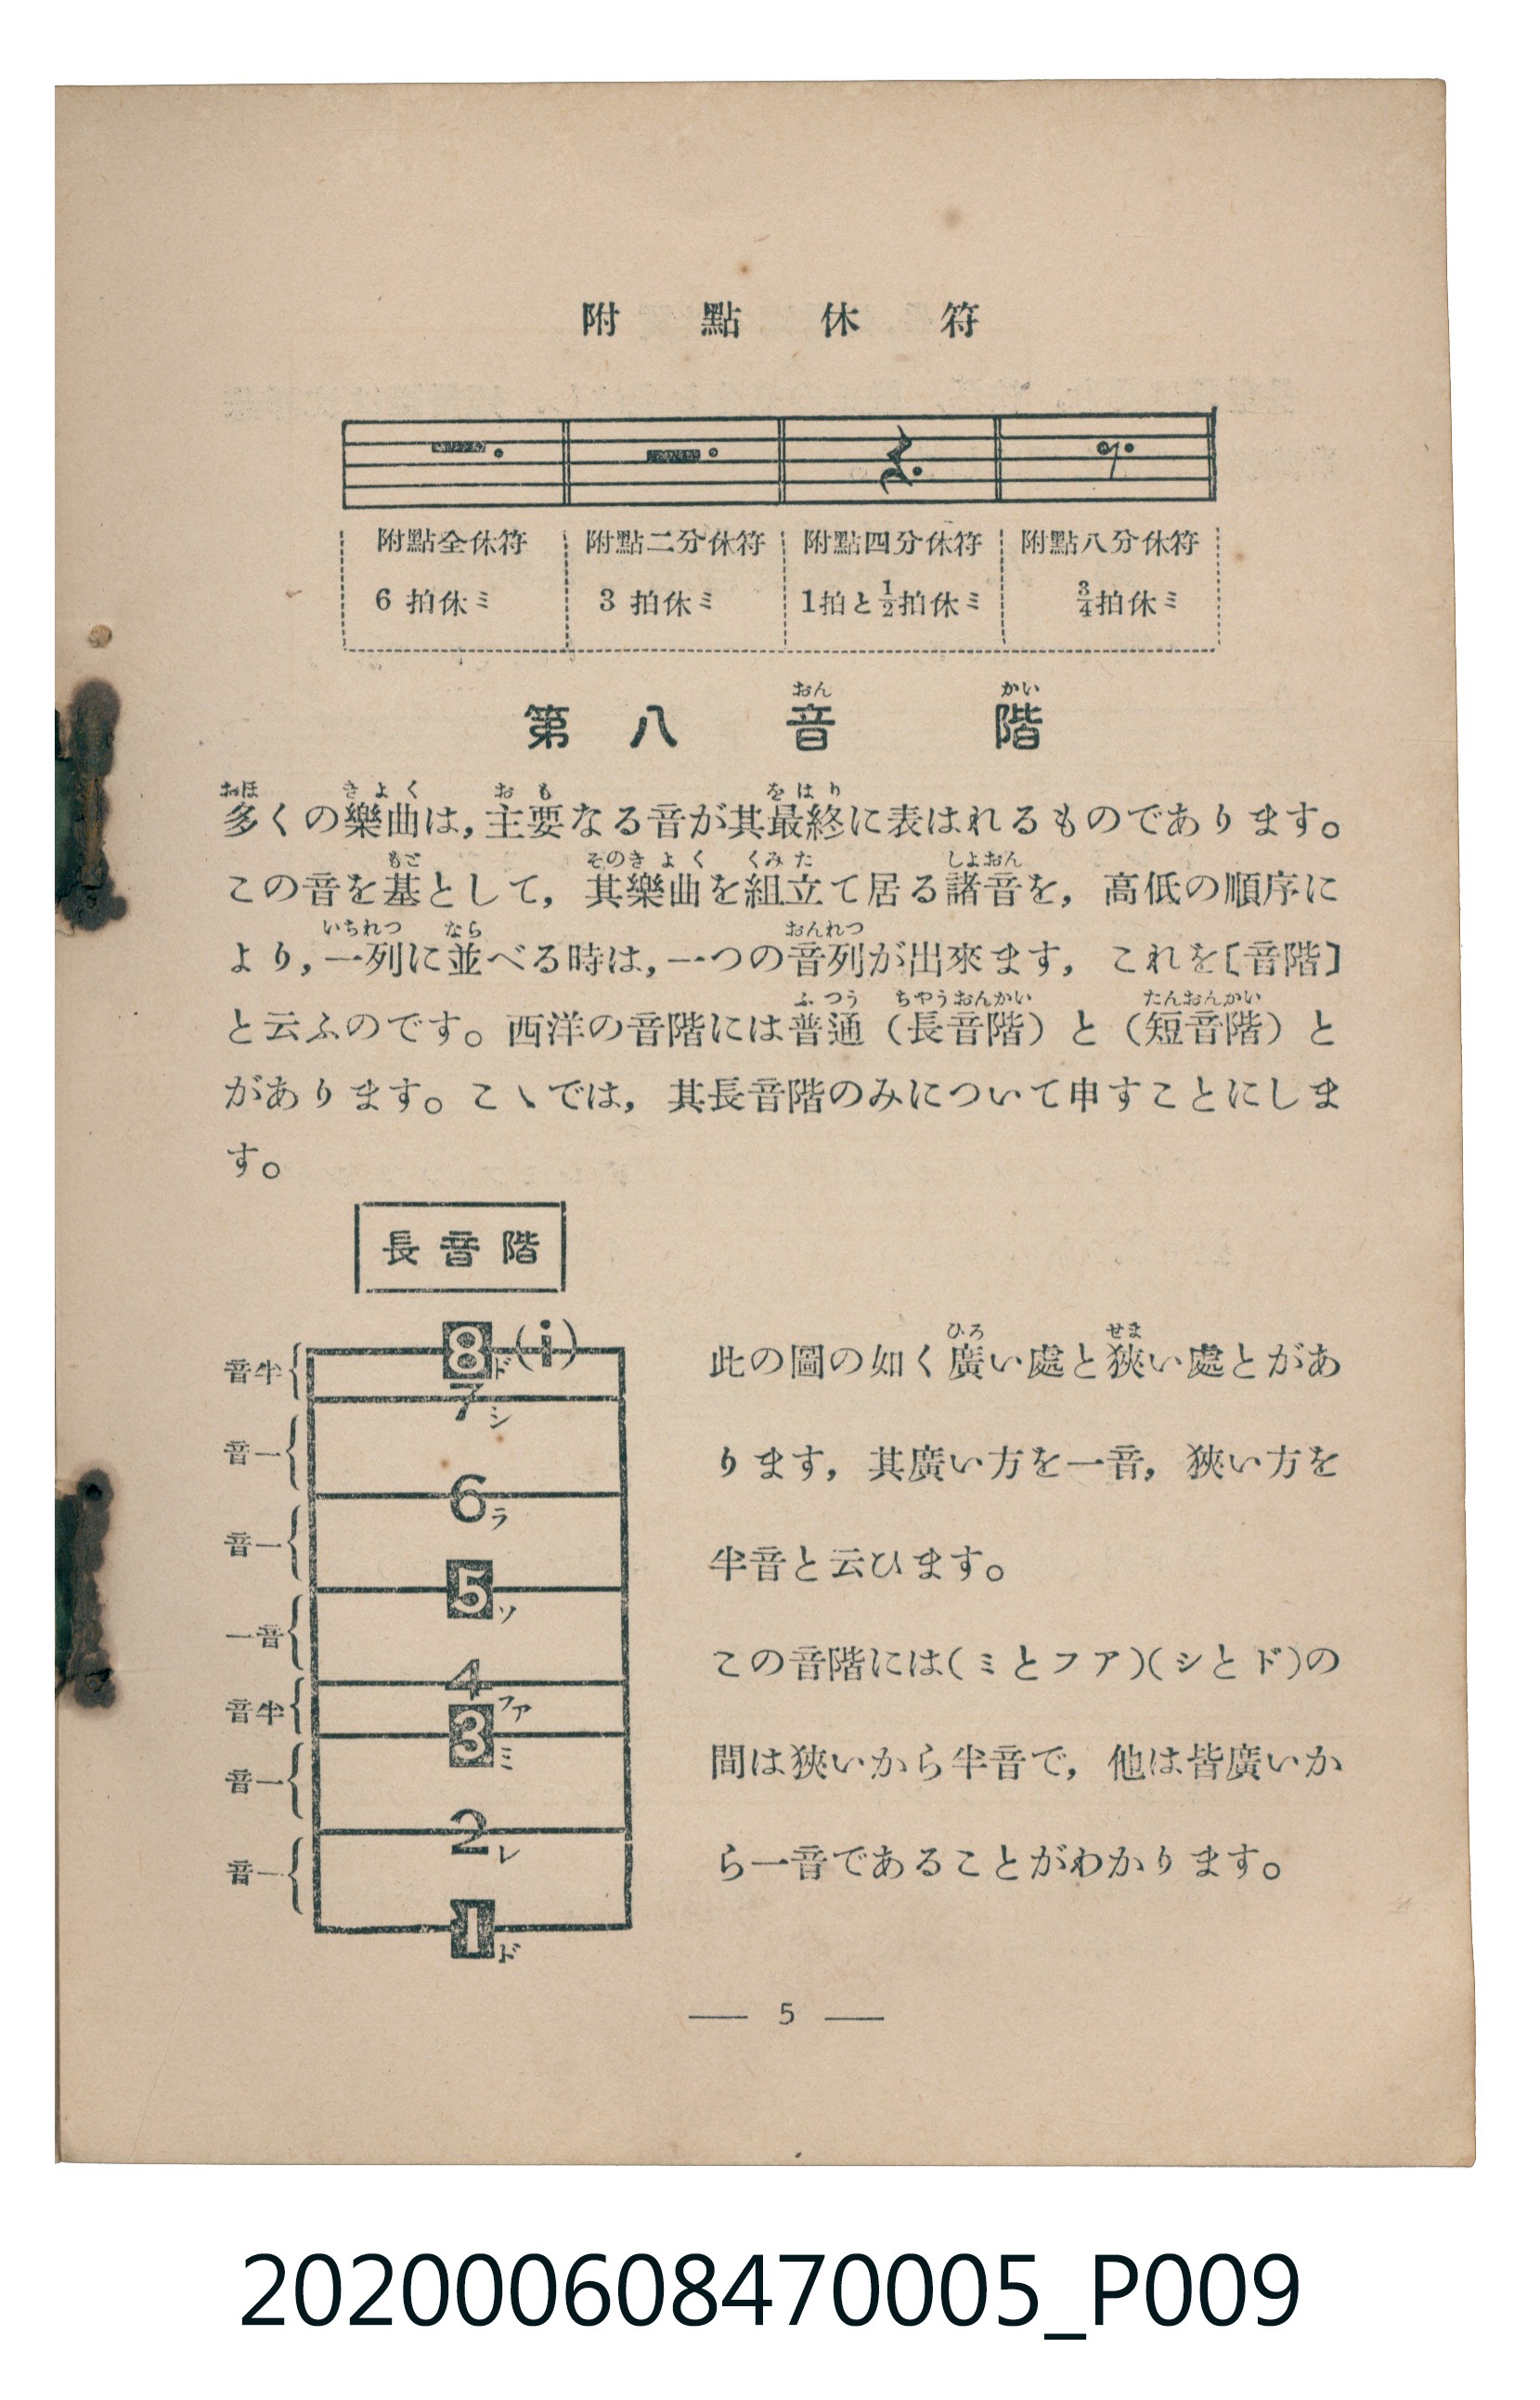 附點休符
附點全休符 附點二分休符 附點四分休符 附點八分休符
6 拍休ミ 3 拍休ミ 1拍と½拍休ミ ¾拍休ミ
おん かい
第八 音階
おほ きよく おも をはり
多くの樂曲は,主要なる音が其最終に表はれるものであります。
もと そのきよく くみた しよおん
この音を基として,其樂曲を組立て居る諸音を,高低の順序に
いちれつ なら おんれつ
より,一列に並べる時は,一つの音列が出來ます,これを〔音階〕
ふつう ちやうおんかい たんおんかい
と云ふのです。西洋の音階には普通(長音階)と(短音階)と
があります。こゝでは,其長音階のみについて申すことにしま
す。
長音階
音半 8 ド (i)
7 シ
音一
6 ラ
音一
5 ソ
一音
4 ファ
音半
3 ミ
音一
2 レ
音一
1 ド
ひろ せま
此の圖の如く廣い處と狹い處とがあ
ります,其廣い方を一音,狹い方を
半音と云ひます。
この音階には(ミとファ)(シとド)の
間は狹いから半音で,他は皆廣いか
ら一音であることがわかります。
— 5 —
202000608470005_P009